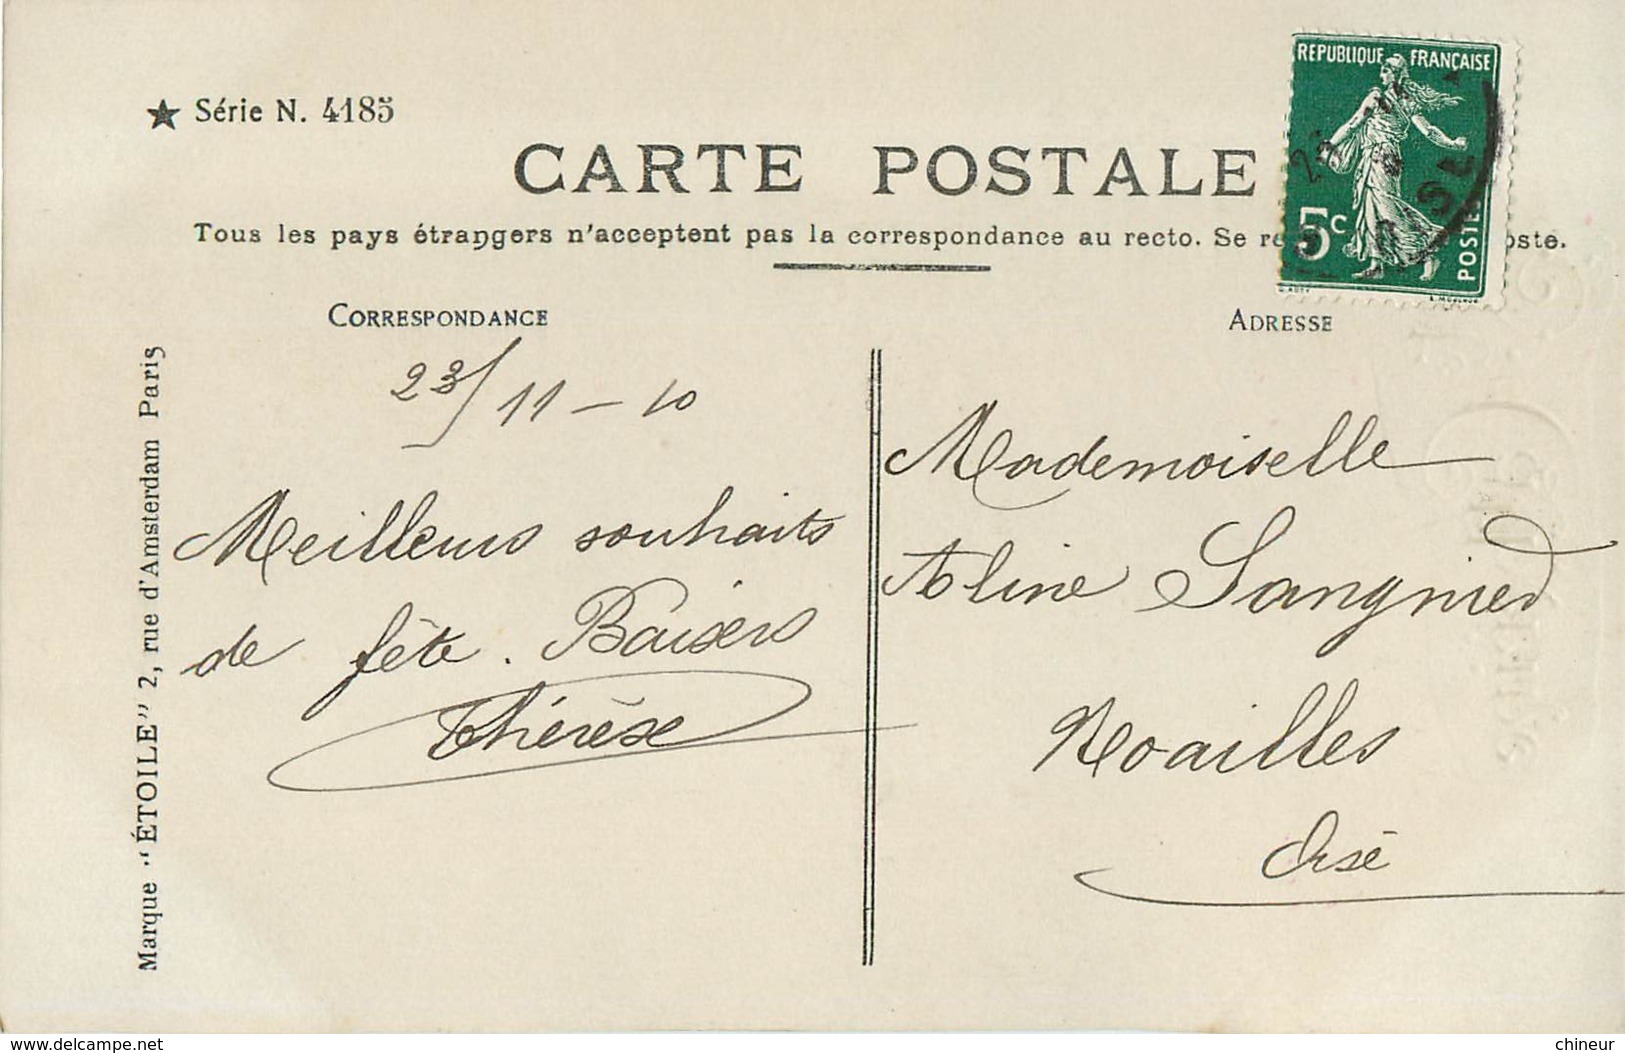 ★ Série N. 4185
CARTE POSTALE
Tous les pays étrangers n'acceptent pas la correspondance au recto. Se re oste.
REPUBLIQUE FRANÇAISE
5c
POSTES
CORRESPONDANCE
23/11-10
Meilleurs souhaits
de fête. Baisers
Thérèse
ADRESSE
Mademoiselle
Aline Sangnier
Noailles
Oise
Marque "ÉTOILE" 2, rue d'Amsterdam Paris
delcampe.net
chineur